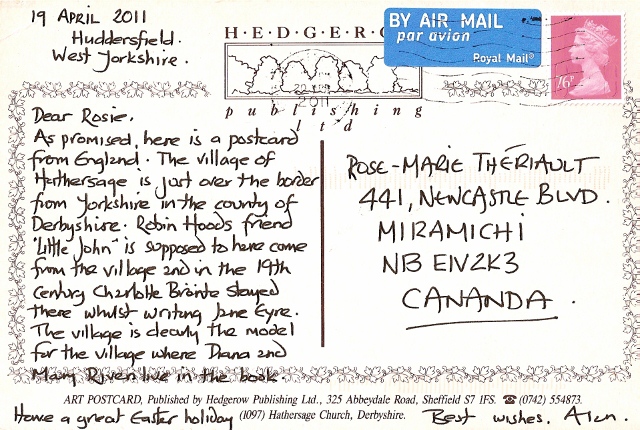 19 APRIL 2011
Huddersfield.
West Yorkshire.
H·E·D·G·E·R·O
publishing
ltd
BY AIR MAIL
par avion
Royal Mail
2011
76P
Dear Rosie.
As promised, here is a postcard
from England. The village of
Hathersage is just over the border
from Yorkshire in the county of
Derbyshire. Robin Hoods friend
"Little John" is supposed to have come
from the village and in the 19th
Century Charlotte Brönte stayed
there whilst writing Jane Eyre.
The village is clearly the model
for the village where Diana and
Mary Rivers live in the book.
Have a great Easter holiday
Best wishes. Alan.
ROSE-MARIE THÉRIAULT
441, NEWCASTLE BLVD.
MIRAMICHI
NB E1V2K3
CANANDA.
ART POSTCARD, Published by Hedgerow Publishing Ltd., 325 Abbeydale Road, Sheffield S7 1FS. ☎ (0742) 554873.
(1097) Hathersage Church, Derbyshire.